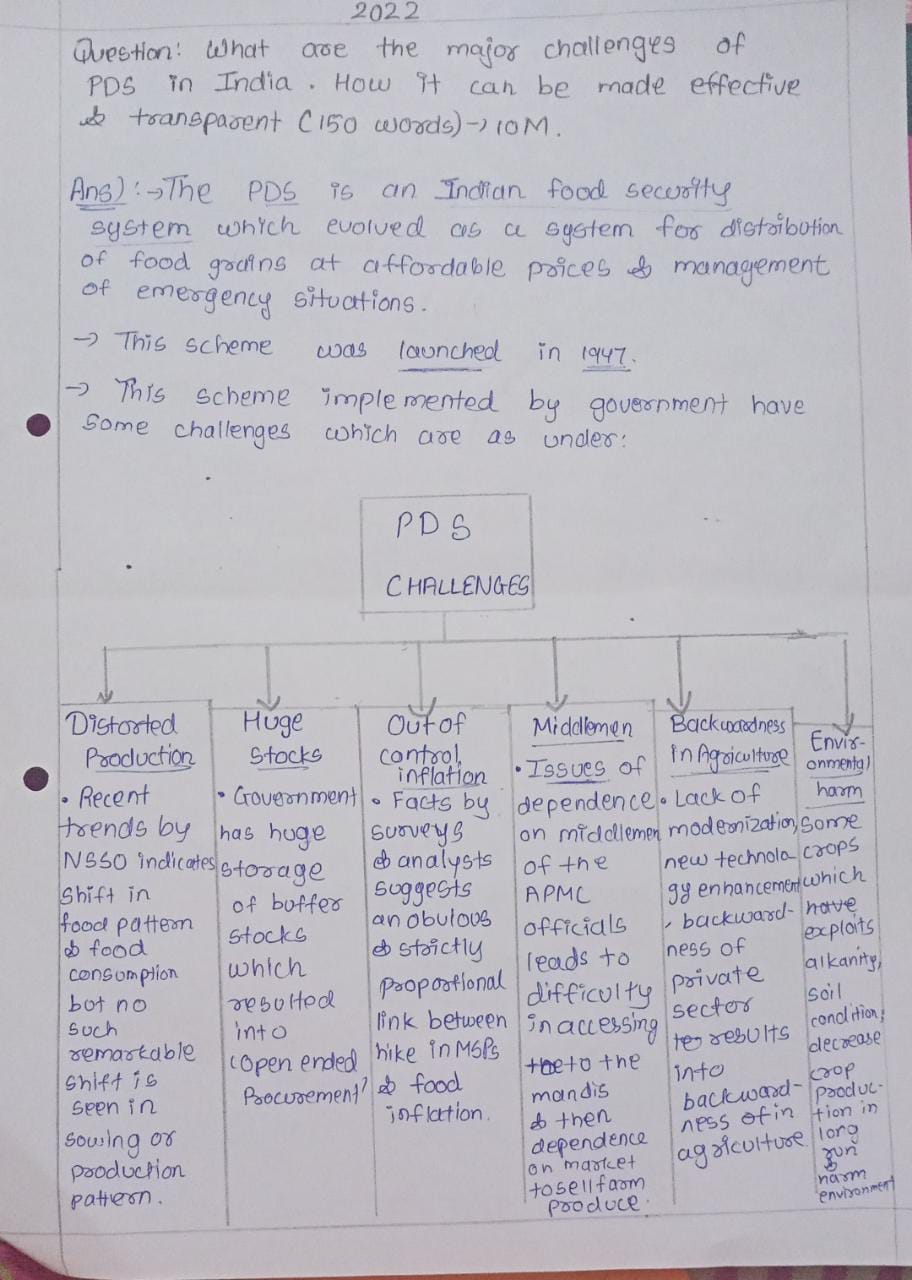 2022
Question: What are the major challenges of
PDS in India. How it can be made effective
& transparent (150 words) → 10M.
Ans) :→ The PDS is an Indian food security
system which evolved as a system for distribution
of food grains at affordable prices & management
of emergency situations.
→ This scheme was launched in 1947.
→ This scheme implemented by government have
some challenges which are as under:
PDS
CHALLENGES
Distorted
Production
• Recent
trends by
NSSO indicates
shift in
food pattern
& food
consumption
but no
such
remarkable
shift is
seen in
sowing or
production
pattern.
Huge
Stocks
• Government
has huge
storage
of buffer
stocks
which
resulted
into
'Open ended
Procurement'
Out of
control
inflation
• Facts by
surveys
& analysts
suggests
an obvious
& strictly
proportional
link between
hike in MSPs
& food
inflation.
Middlemen
• Issues of
dependence
on middlemen
of the
APMC
officials
leads to
difficulty
in accessing
to the
mandis
& then
dependence
on market
to sell farm
produce.
Backwardness
in Agriculture
• Lack of
modernization,
new technolo
gy enhancement
, backward-
ness of
private
sector
results
into
backward-
ness of in
agriculture
Envir-
onmental
harm
Some
crops
which
have
exploits
alkanity,
soil
condition,
decrease
crop
produc-
tion in
long
run
&
harm
environment